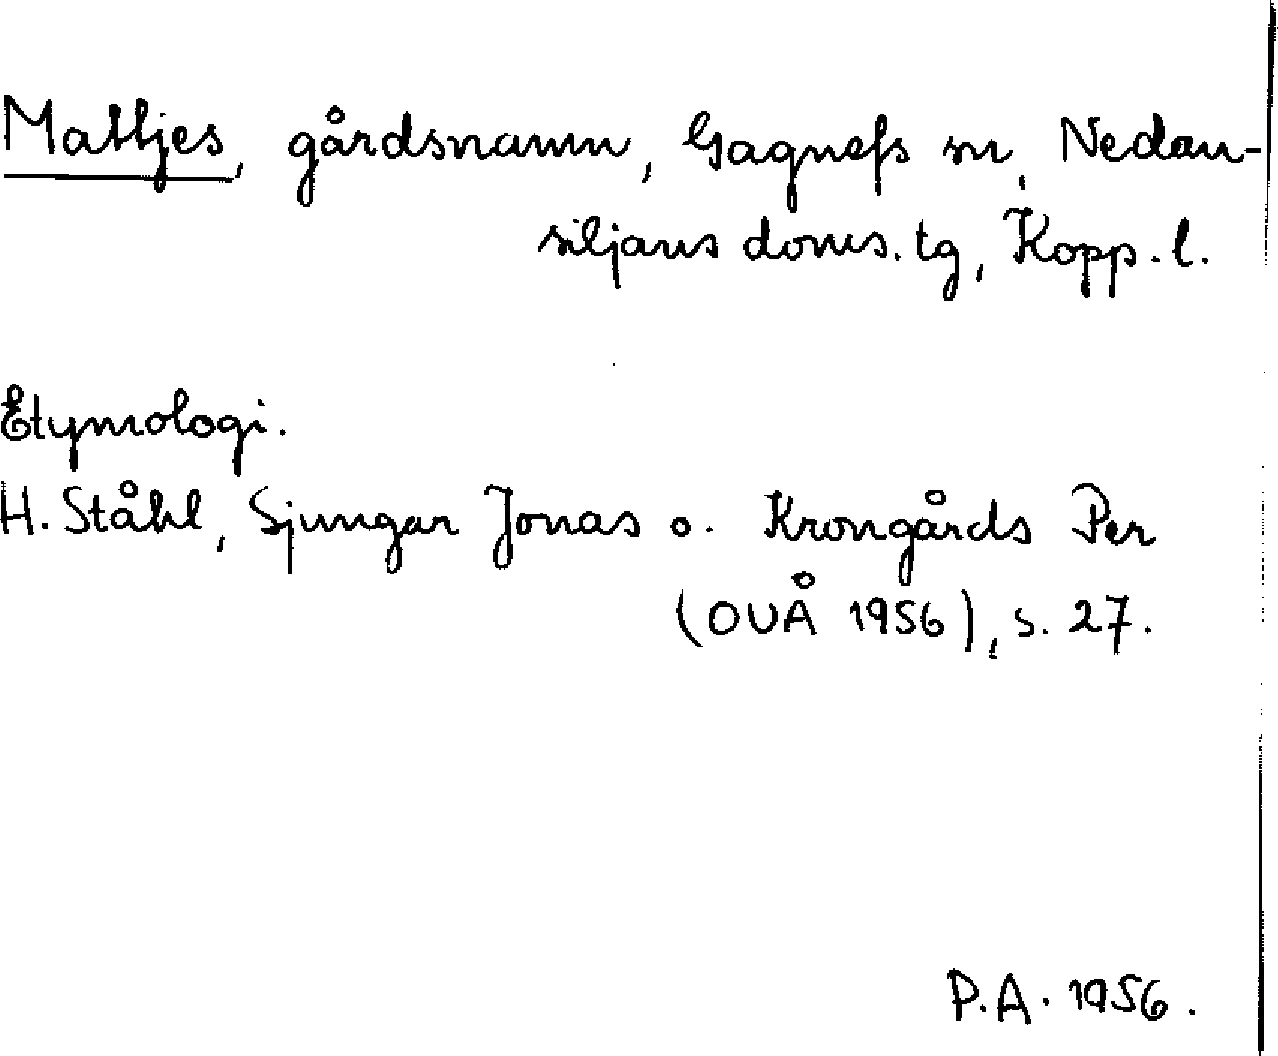 Mattjes, gårdsnamn, Gagnefs sn, Nedan-
siljans doms. tg, Kopp. l.
Etymologi.
H. Ståhl, Sjungar Jonas o. Krongårds Per
(OUÅ 1956), s. 27.
P.A. 1956.